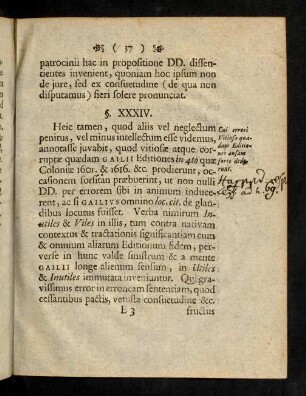 ( 37 )
patrocinii hac in propositione DD. dissen-
tientes invenient, quoniam hoc ipsum non
de jure, sed ex consuetudine (de qua non
disputamus) fieri solere pronunciat.
§. XXXIV.
Heic tamen, quod aliis vel neglectum
penitus, vel minus intellectum esse videmus,
annotasse juvabit, quod vitiosæ atque cor-
ruptæ quædam GAILII Editiones in 4to quæ
Coloniæ 1601. & 1616. &c. prodierunt, oc-
casionem forsitan præbuerint, ut non nulli
DD. per errorem sibi in animum induce-
rent, ac si GAILIUS omnino loc. cit. de glan-
dibus locutus fuisset. Verba nimirum In-
utiles & Viles in illis, tum contra nativam
contextus & tractationis significantiam cum
& omnium aliarum Editionum fidem, per-
verse in hunc valde sinistrum & a mente
GAILII longe alienum sensum, in Utiles
& Inutiles immutata inveniuntur. Qui gra-
vissimus error in erroneam sententiam, quod
cessantibus pactis, vetusta consuetudine &c.
E 3 fructus
Cui errori
Vitiosæ quæ-
dam Editio-
nes ansam
forte dede-
runt.